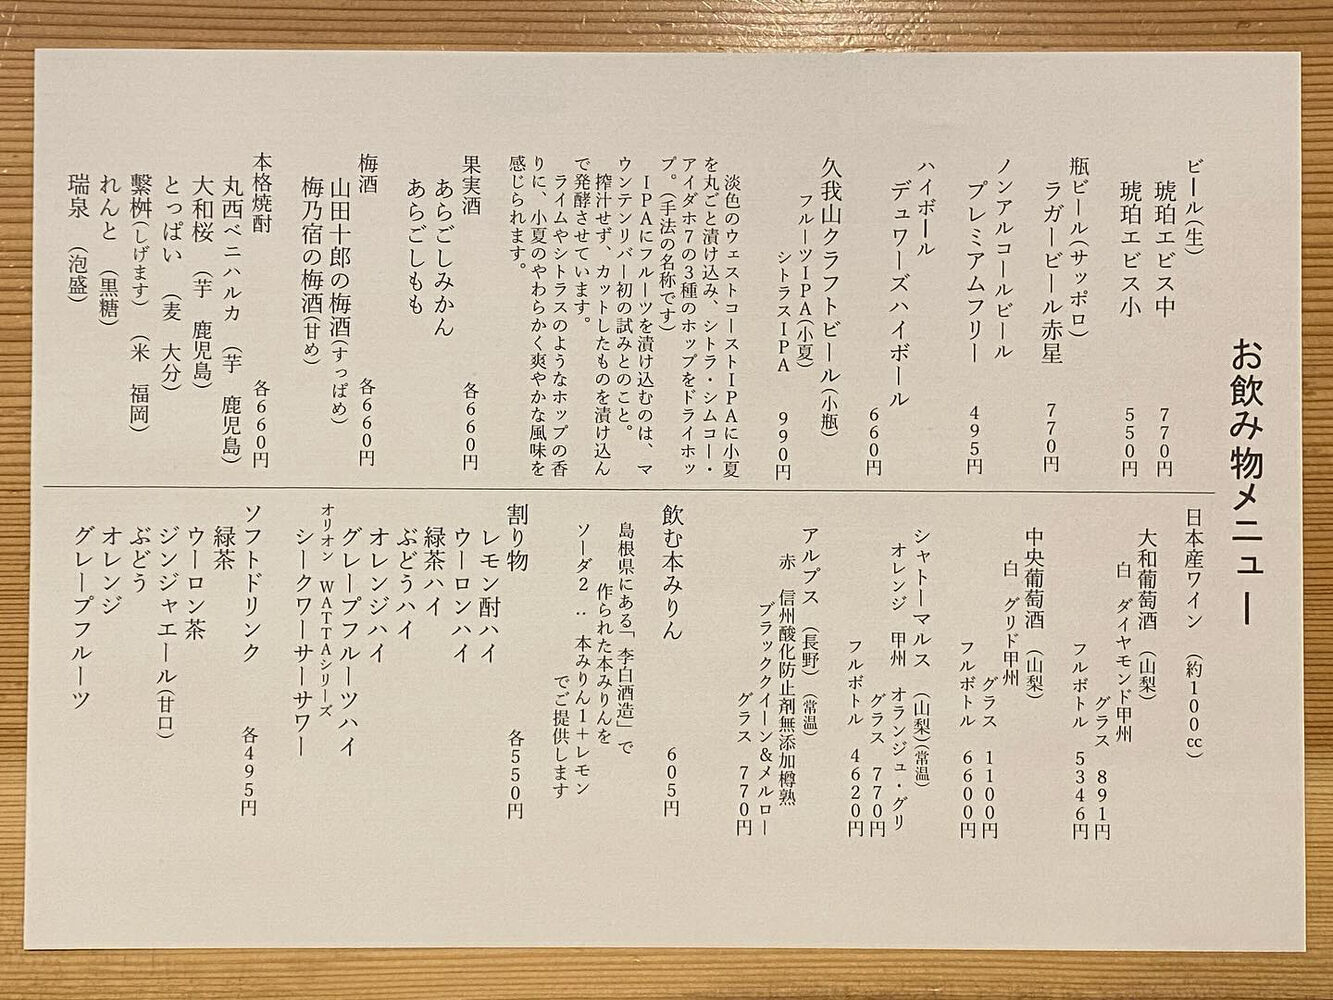 お飲み物メニュー
ビール(生)
琥珀エビス中 770円
琥珀エビス小 550円
瓶ビール(サッポロ)
ラガービール赤星 770円
ノンアルコールビール
プレミアムフリー 495円
ハイボール
デュワーズハイボール
660円
久我山クラフトビール(小瓶)
フルーツIPA(小夏)
シトラスIPA 990円
淡色のウェストコーストIPAに小夏
を丸ごと漬け込み、シトラ・シムコー・
アイダホ7の3種のホップをドライホッ
プ。(手法の名称です)
IPAにフルーツを漬け込むのは、マ
ウンテンリバー初の試みとのこと。
搾汁せず、カットしたものを漬け込ん
で発酵させています。
ライムやシトラスのようなホップの香
りに、小夏のやわらかく爽やかな風味を
感じられます。
果実酒 各660円
あらごしみかん
あらごしもも
梅酒 各660円
山田十郎の梅酒(すっぱめ)
梅乃宿の梅酒(甘め)
本格焼酎 各660円
丸西ベニハルカ (芋 鹿児島)
大和桜 (芋 鹿児島)
とっぱい (麦 大分)
繋桝(しげます) (米 福岡)
れんと (黒糖)
瑞泉 (泡盛)
日本産ワイン (約100cc)
大和葡萄酒 (山梨)
白 ダイヤモンド甲州
グラス 891円
フルボトル 5346円
中央葡萄酒 (山梨)
白 グリド甲州
グラス 1100円
フルボトル 6600円
シャトーマルス (山梨)(常温)
オレンジ 甲州 オランジュ・グリ
グラス 770円
フルボトル 4620円
アルプス (長野) (常温)
赤 信州酸化防止剤無添加樽熟
ブラッククイーン&メルロー
グラス 770円
飲む本みりん 605円
島根県にある「李白酒造」で
作られた本みりんを
ソーダ2：本みりん1+レモン
でご提供します
割り物 各550円
レモン酎ハイ
ウーロンハイ
緑茶ハイ
ぶどうハイ
オレンジハイ
グレープフルーツハイ
オリオン WATTAシリーズ
シークワーサーサワー
ソフトドリンク 各495円
緑茶
ウーロン茶
ジンジャエール(甘口)
ぶどう
オレンジ
グレープフルーツ